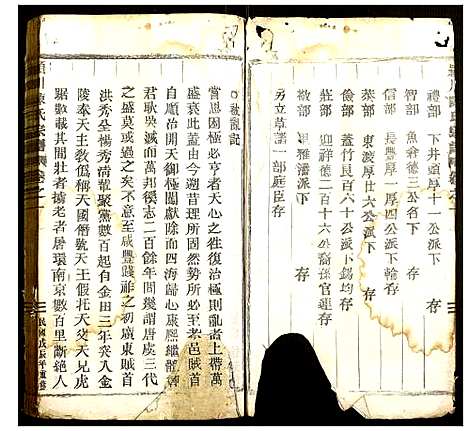 潁川陳氏宗譜
禮部 下井頭厚十一公派下 存
智部 魚翁德三公下 存
信部 長豐厚一厚四公派下輪存
恭部 東渡厚廿六公派下 存
儉部 蓋竹艮百六十公下錫均存
讓部 迎祥德二百十六公裔孫官蓮存
初都祖潘派下 存
另立草譜一部庭臣存
○被亂記
嘗思困極必亨者天心之往復治極則亂者上帶萬
盛衰此蓋由今邇昔理所固然勢所必至者邑賊首
自順治開天御極闔獻除而四海歸心康熙繼體
君耿吳滅而萬邦從志二百餘年間幾謂唐虞三代
之盛莫或過之矣不意至咸豐踐祚之初廣東賊首
洪秀全楊秀清糾聚黨數百起自金田三年突入金
陵奉天主教僞稱天國僭號天王假托天父天兄虐
驅數載其間壯者擄老者屠環南京數百里斷絕人
陳氏宗譜 卷之一
民國戊辰年重修